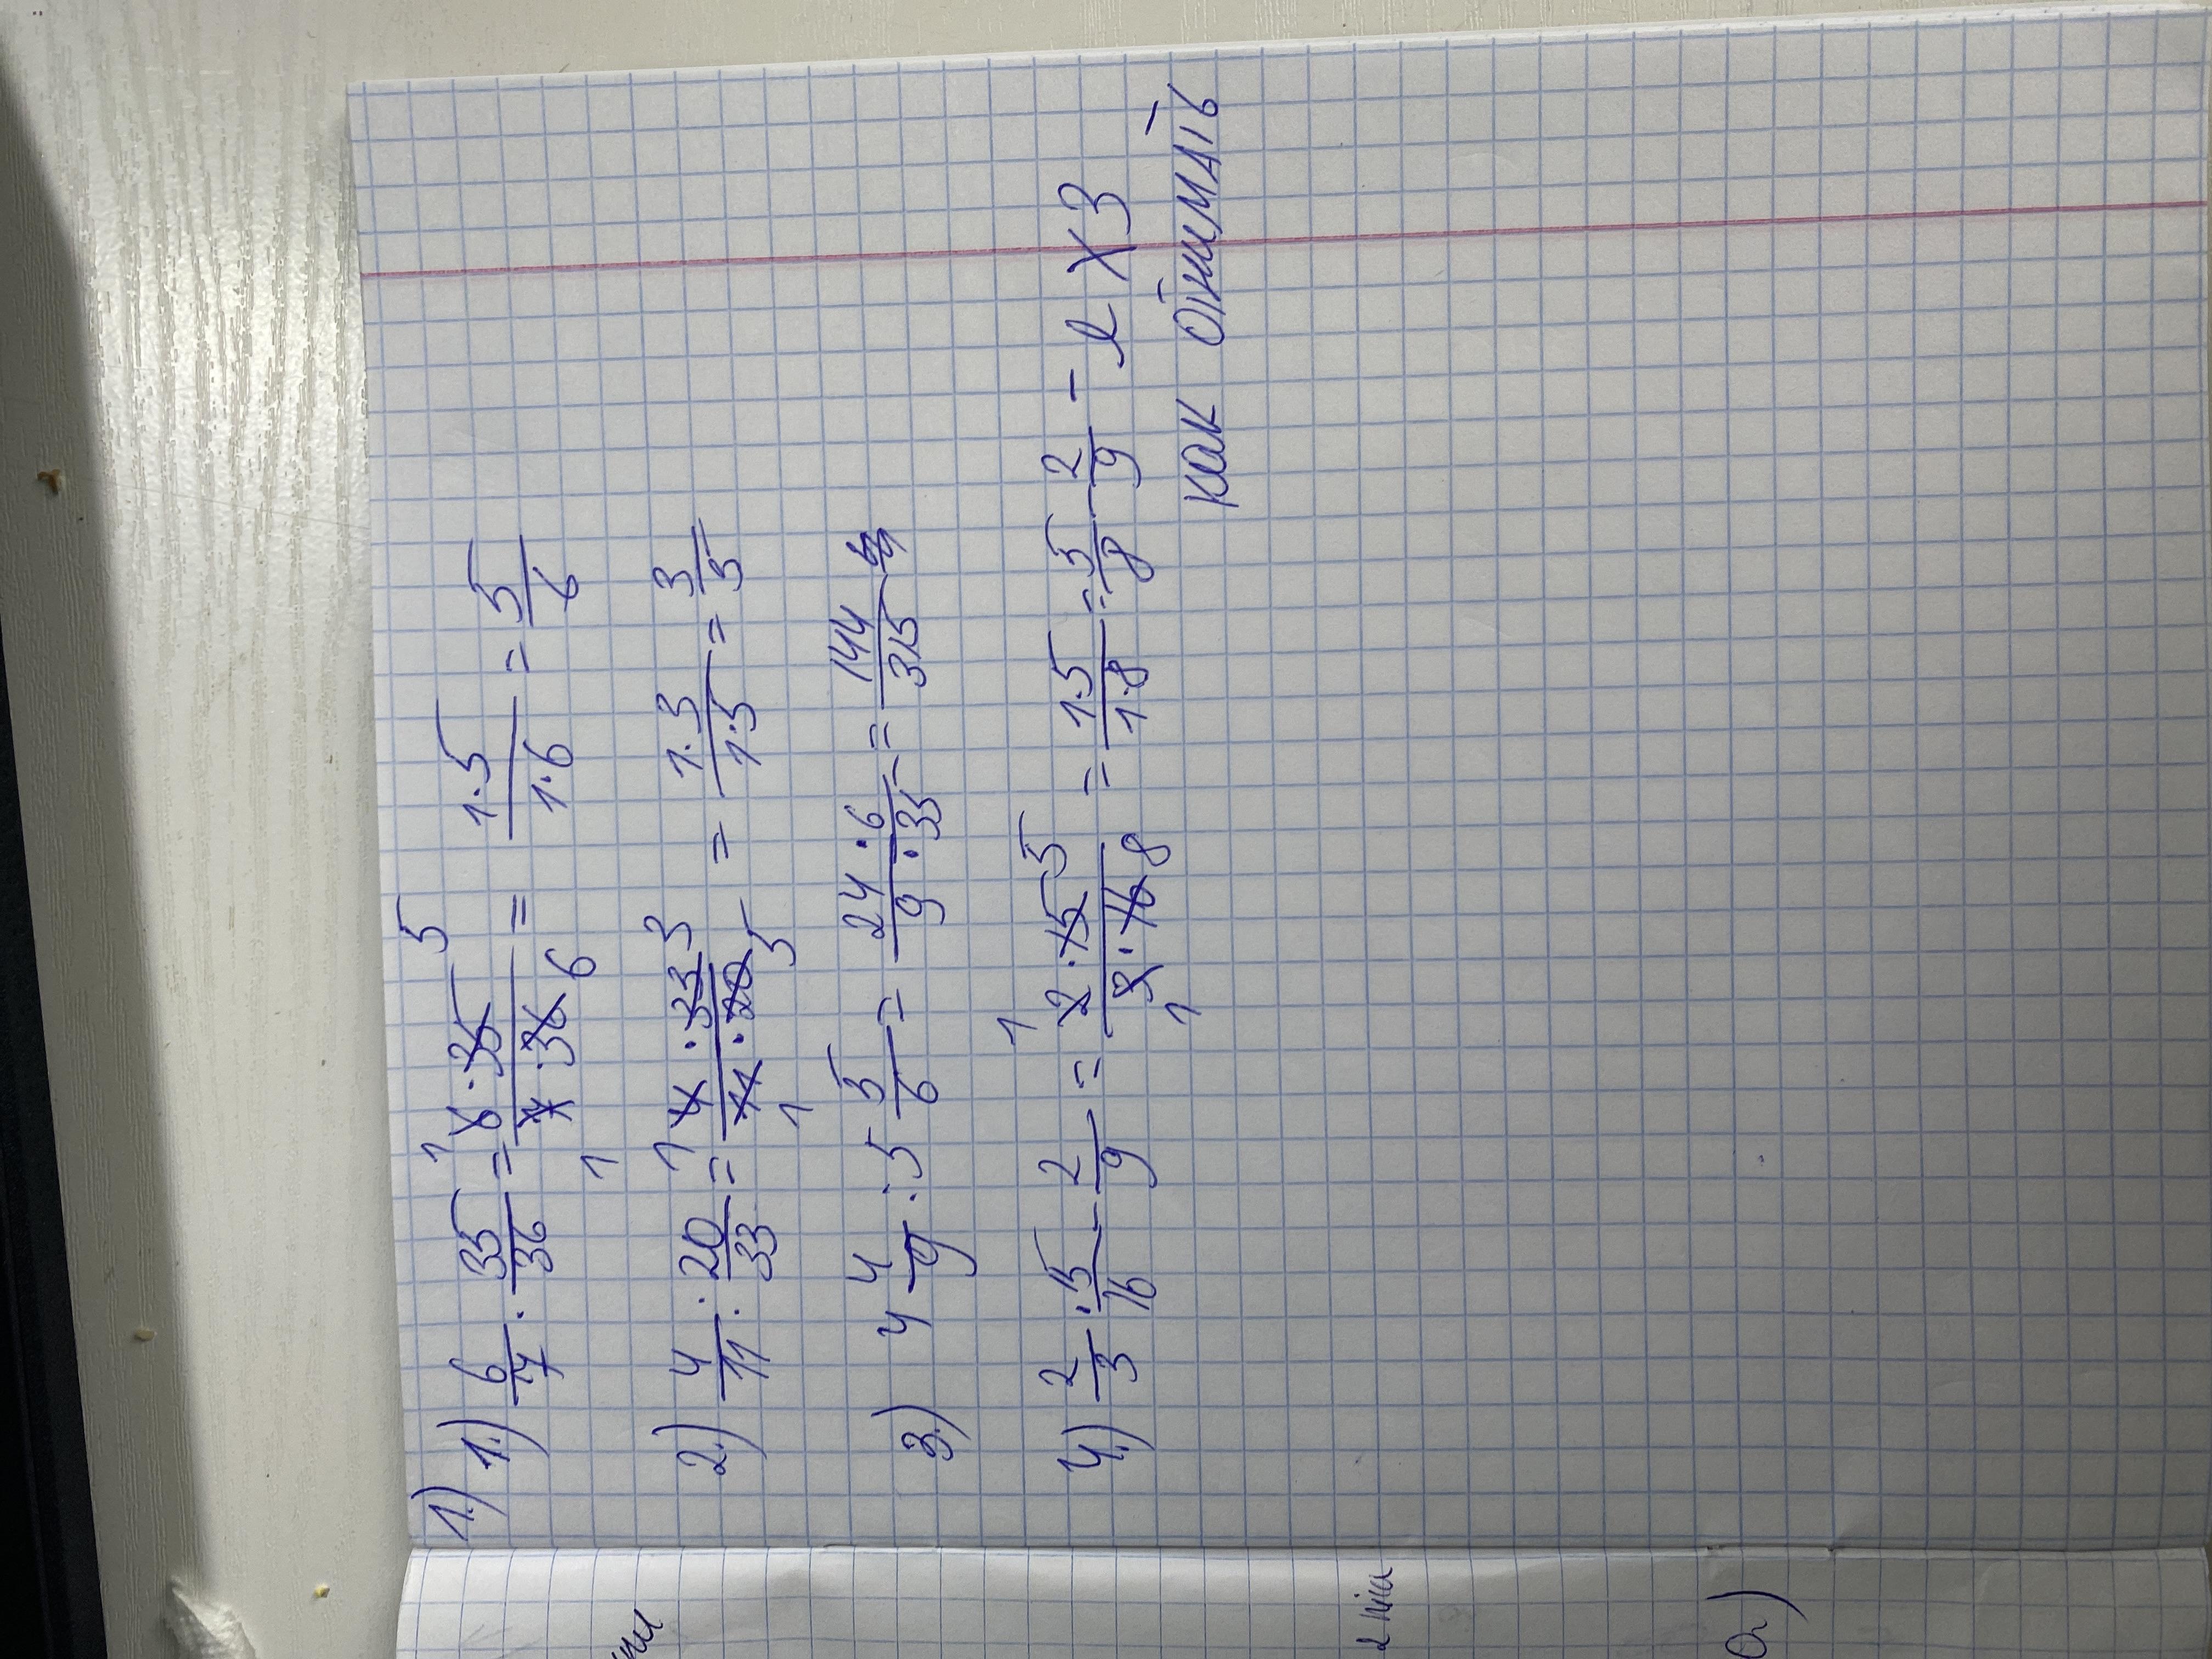 1.) 1.) 6/7 · 35/36 = 6 · 35 / 7 · 36 = 1·5 / 1·6 = 5/6
1 5
1 6
2.) 4/11 : 20/33 = 4 · 33 / 11 · 20 = 1·3 / 1·5 = 3/5
1 3
1 5
3.) 4 4/9 : 5 5/6 = 24 · 6 / 9 · 35 = 144/315
4.) 2/3 · 15/16 - 2/9 = 2 · 15 / 3 · 16 = 1·5 / 1·8 = 5/8 - 2/9 - я ХЗ
1 5
1 8
как отнимать
2)